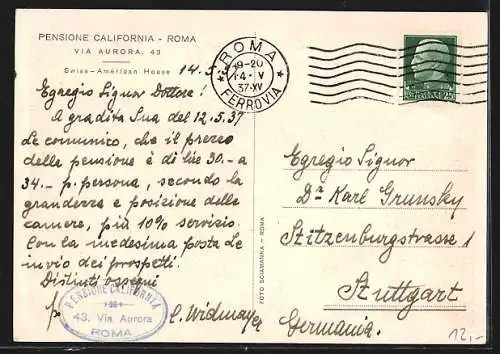 PENSIONE CALIFORNIA - ROMA
VIA AURORA, 43
Swiss-American House
14.5.
Egregio Signor Dottore!
A gradita Sua del 12.5.37
Le comunico, che il prezzo
della pensione è di lire 30.- a
34.- p. persona, secondo la
grandezza e posizione delle
camere, più 10% servizio.
Con la medesima posta Le
invio dei prospetti.
Distinti ossequi
C. Widmayer
PENSIONE CALIFORNIA
43, Via Aurora
ROMA
FOTO SCIAMANNA - ROMA
ROMA
19-20
14·V
37·XV
FERROVIA
Egregio Signor
Dr. Karl Grunsky
Stitzenburgstrasse 1
Stuttgart
Germania.
12,-